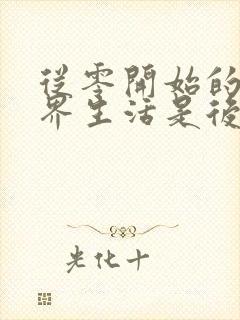 從零開始的
界生活是後
光化十